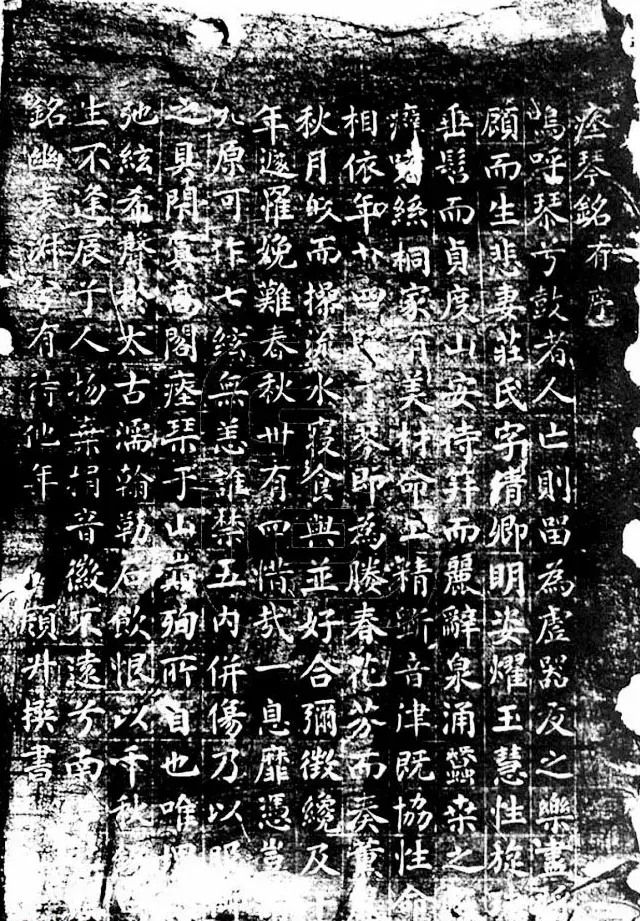 瘞琴銘有序
嗚呼琴兮鼓者人亡則留為虛器友之樂盡
顧而生悲妻莊氏字倩卿明姿燿玉慧性旋
垂髫而貞度山安待笄而麗辭泉涌蠶桒之
絲桐家有美材命工精斲音津既協性命
相依年廿四琴即為媵春花芬而奏薰
秋月皎而操流水寢食與並好合彌徴纔及
年遂罹娩難春秋卅有四惜哉一息靡憑豈
九原可作七絃無恙誰禁五內併傷乃以
之具閉寘高閣瘞琹于山巔殉所自也唯
弛絃希聲太古濡翰勒石飲恨以千秋
生不逢辰兮人物棄捐音徽不遠兮南
銘幽表兮有待他年 顧升撰書